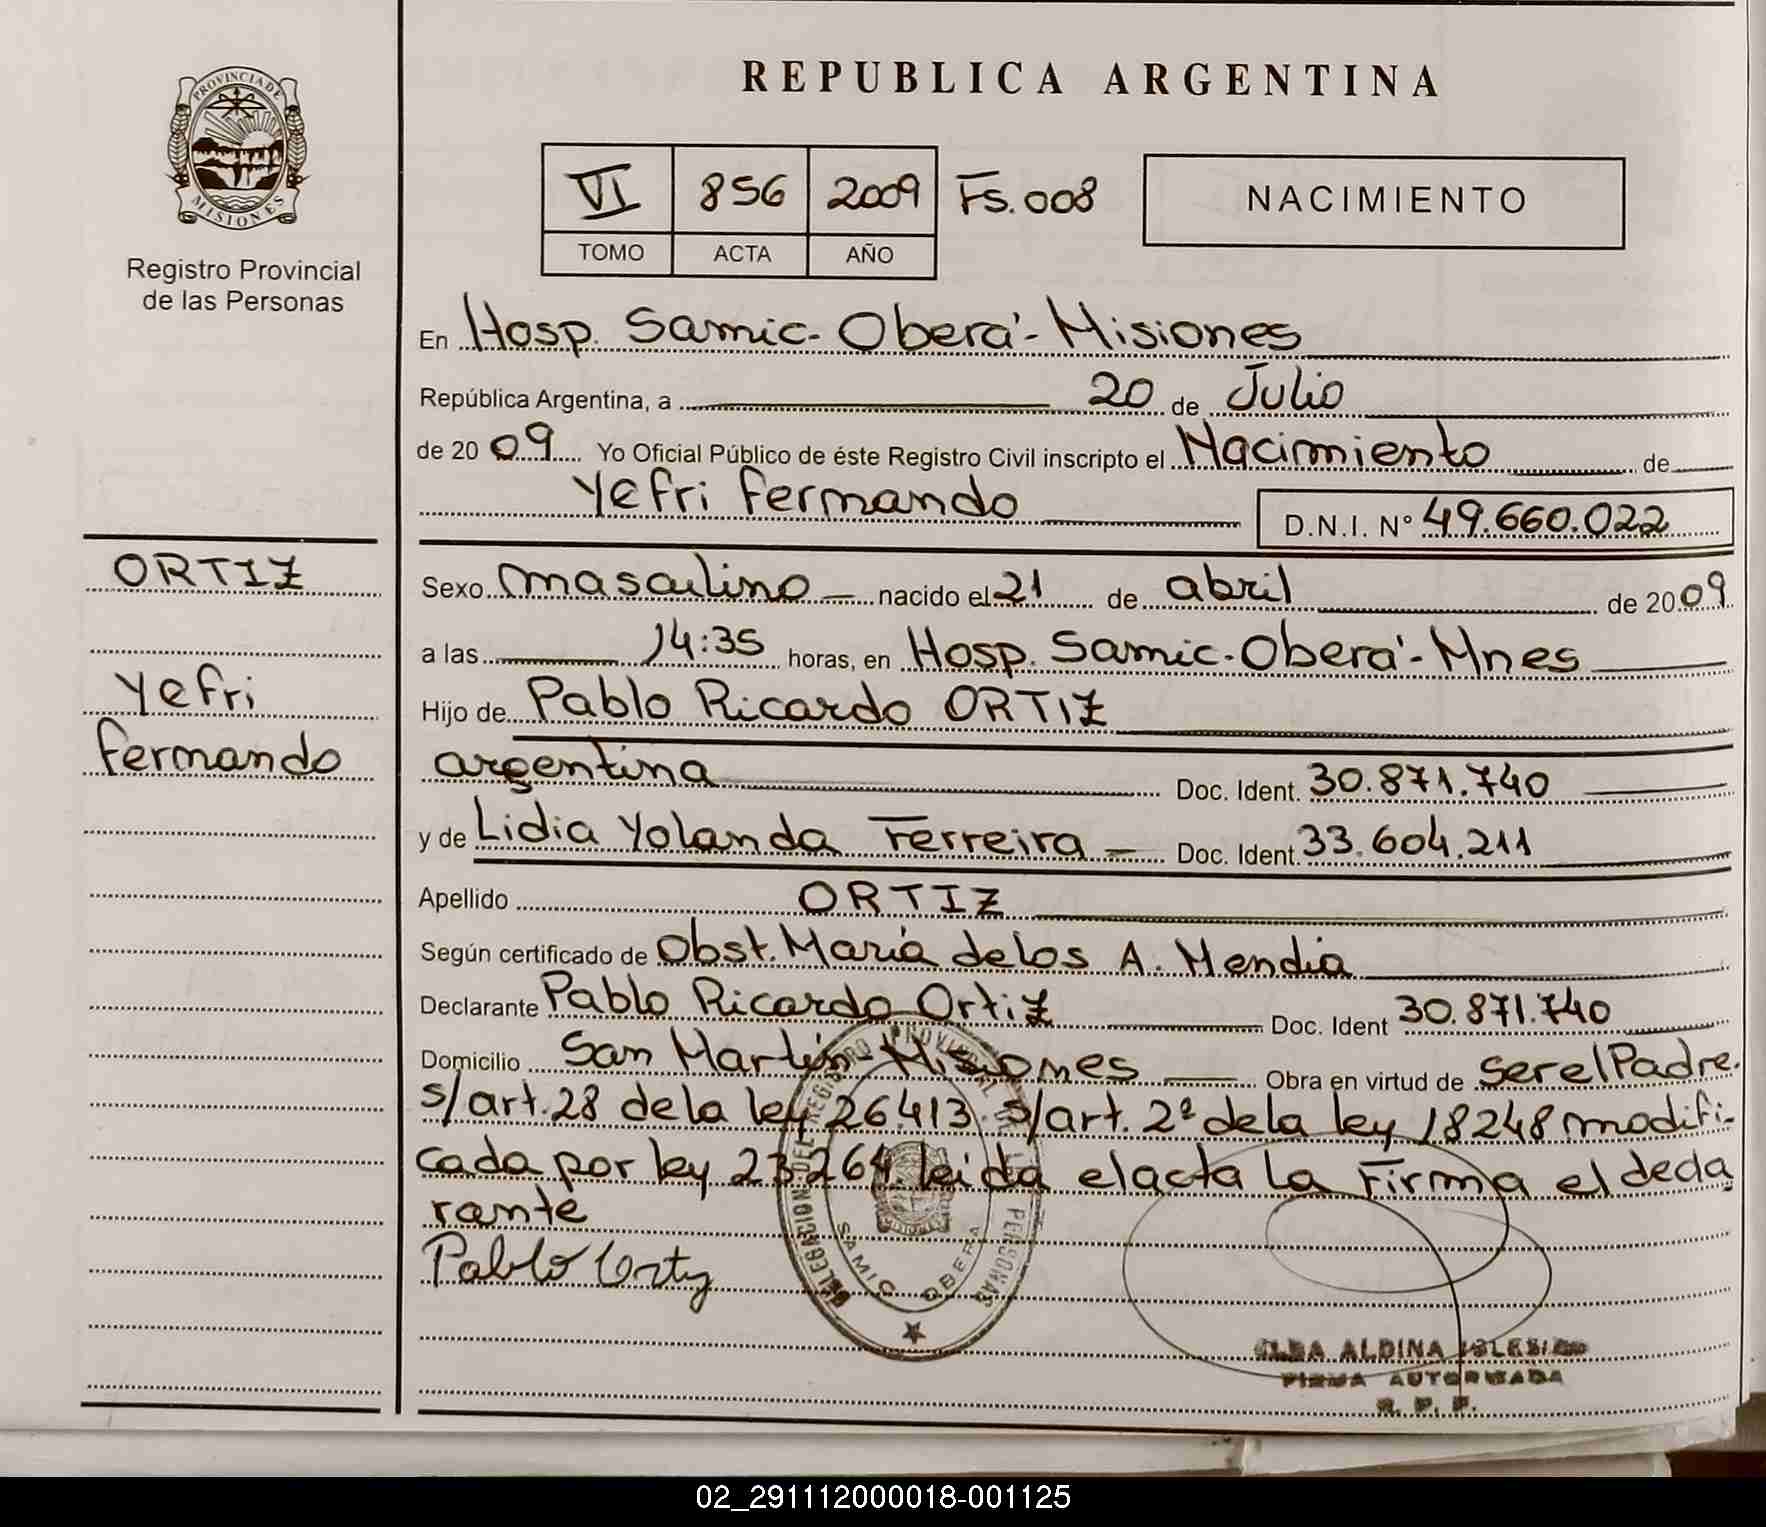 REPUBLICA ARGENTINA
PROVINCIA DE MISIONES
Registro Provincial
de las Personas
VI 856 2009 Fs. 008
TOMO ACTA AÑO
NACIMIENTO
En Hosp. Samic - Oberá - Misiones
República Argentina, a 20 de Julio
de 2009 Yo Oficial Público de éste Registro Civil inscripto el Nacimiento de
Yefri fernando D.N.I. N° 49.660.022
ORTIZ
Yefri
fernando
Sexo masculino nacido el 21 de abril de 2009
a las 14:35 horas, en Hosp. Samic - Oberá - Mnes
Hijo de Pablo Ricardo ORTIZ
argentina Doc. Ident. 30.871.740
y de Lidia Yolanda Ferreira Doc. Ident. 33.604.211
Apellido ORTIZ
Según certificado de Obst. María de los A. Mendia
Declarante Pablo Ricardo Ortiz Doc. Ident 30.871.740
Domicilio San Martín - Misiones Obra en virtud de ser el Padre.
s/art. 28 de la ley 26.413. s/art. 2º de la ley 18248 modifi-
cada por ley 23.264. leida el acta la Firma el decla
rante
Pablo Ortiz
DELEGACION DEL REGISTRO PROVINCIAL DE LAS PERSONAS
SAMIC OBERA
ELBA ALDINA IGLESIAS
FIRMA AUTORIZADA
R. P. P.
02_291112000018-001125